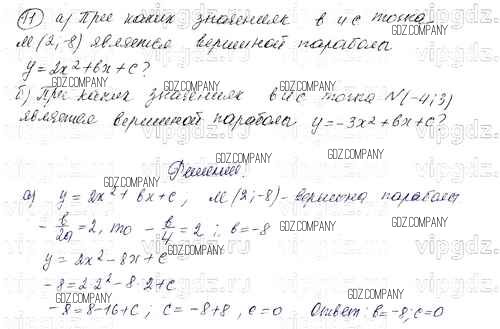 11 а) При каких значениях в и с точка
М(2;-8) является вершиной параболы
y=2x²+bx+c?
б) При каких значениях в и с точка N(-4;3)
является вершиной параболы y=-3x²+bx+c?
Решение.
а) y=2x²+bx+c, М(2;-8)-вершина параболы
-b/2a=2, то -b/4=2; в=-8
y=2x²-8x+c
-8=2·2²-8·2+c
-8=8-16+c; c=-8+8, c=0 Ответ: в=-8; c=0
GDZ.COMPANY
vipgdz.ru